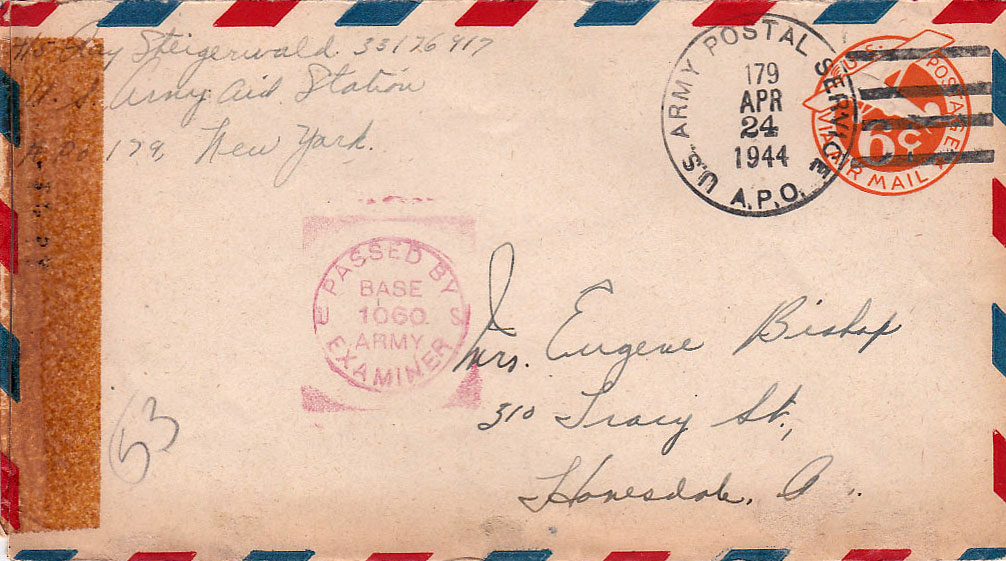 T/5 Ray Steigerwald 33176917
U. S. Army Aid Station
A.P.O. 179, New York.
U.S. ARMY POSTAL SERVICE
179
APR
24
1944
A.P.O.
U.S. POSTAGE
6¢
VIA AIR MAIL
PASSED BY
BASE
1060
ARMY
EXAMINER
Mrs. Eugene Bishop
310 Tracy St.,
Honesdale, Pa.
53